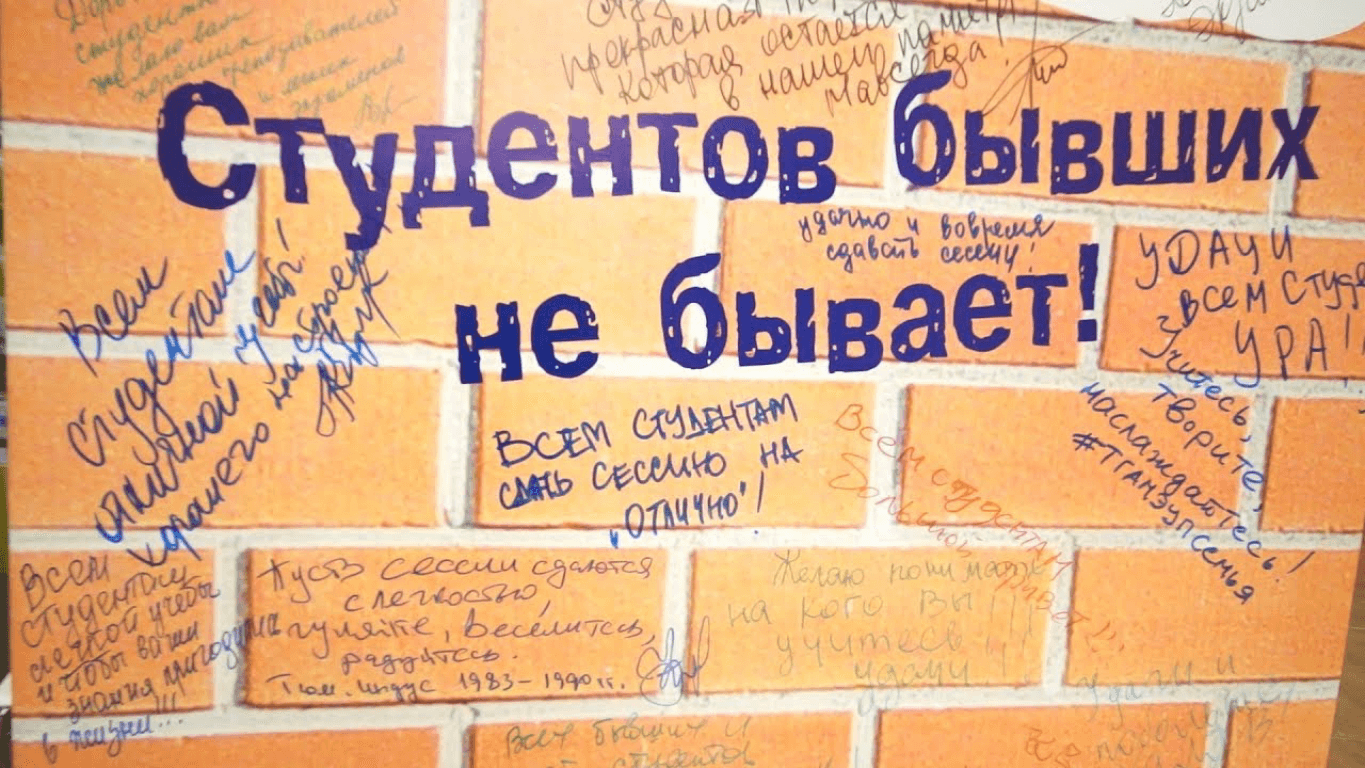 студенты
желаю вам
хороших
преподавателей
и легких
экзаменов
прекрасная
которая остаётся
в нашей памяти
навсегда!
Студентов бывших
не бывает!
удачно и вовремя
сдавать сессии!
УДАЧИ
всем студе
УРА!!
Учитесь,
творите,
наслаждайтесь!
#ТГАМЭУПСЕМЬЯ
Всем
студентам
отличной учебы!
хорошего настроения
ВСЕМ СТУДЕНТАМ
СДАТЬ СЕССИЮ НА
„ОТЛИЧНО"!
Всем студентам
Большой привет!!
Всем
студентам
легкой учебы
и чтобы ваши
знания пригодились
в жизни!!!
Пусть сессии сдаются
с легкостью,
гуляйте, веселитесь,
радуйтесь.
Тюм. индус 1983-1990 гг.
Желаю понимать
на кого Вы
учитесь!!!
удачи!
Всем бывших и
студентов
Удачи и